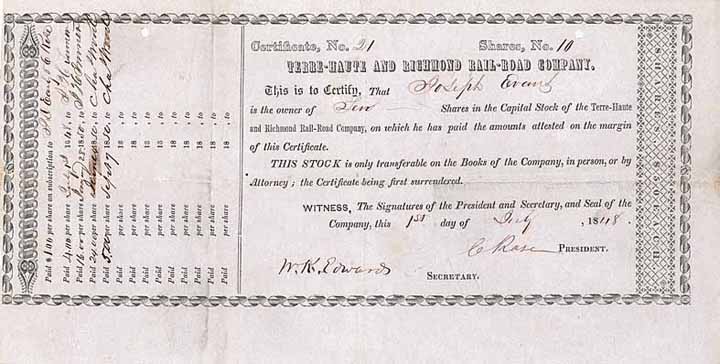 Certificate, No. 21 Shares, No. 10
TERRE-HAUTE AND RICHMOND RAIL-ROAD COMPANY.
This is to Certify, That Joseph Evans
is the owner of Ten Shares in the Capital Stock of the Terre-Haute
and Richmond Rail-Road Company, on which he has paid the amounts attested on the margin
of this Certificate.
THIS STOCK is only transferable on the Books of the Company, in person, or by
Attorney; the Certificate being first surrendered.
WITNESS, The Signatures of the President and Secretary, and Seal of the
Company, this 1st day of July, 1848.
C Rose PRESIDENT.
W. K. Edwards
SECRETARY.
Paid $1.00 per share on subscription to
Paid 4.00 per share 18 , to
Paid per share 1850, to
Paid per share 1850, to Chas Wood
Paid 5.00 per share Sept 7 1850, to Chas Wood
Paid per share 18 , to
Paid per share 18 , to
Paid per share 18 , to
Paid per share 18 , to
Paid per share 18 , to
Paid per share 18 , to
SHARES $50 EACH